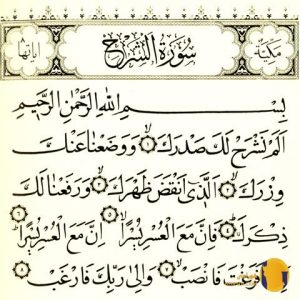 مكية سورة الشرح اياتها
بِسْمِ اللهِ الرَّحْمٰنِ الرَّحِيْمِ
اَلَمْ نَشْرَحْ لَكَ صَدْرَكَ ۝١ وَوَضَعْنَا عَنْكَ
وِزْرَكَ ۝٢ الَّذِيْٓ اَنْقَضَ ظَهْرَكَ ۝٣ وَرَفَعْنَا لَكَ
ذِكْرَكَ ۝٤ فَاِنَّ مَعَ الْعُسْرِ يُسْرًا ۝٥ اِنَّ مَعَ الْعُسْرِ يُسْرًا ۝٦
فَرَغْتَ فَانْصَبْ ۝٧ وَاِلٰى رَبِّكَ فَارْغَبْ ۝٨